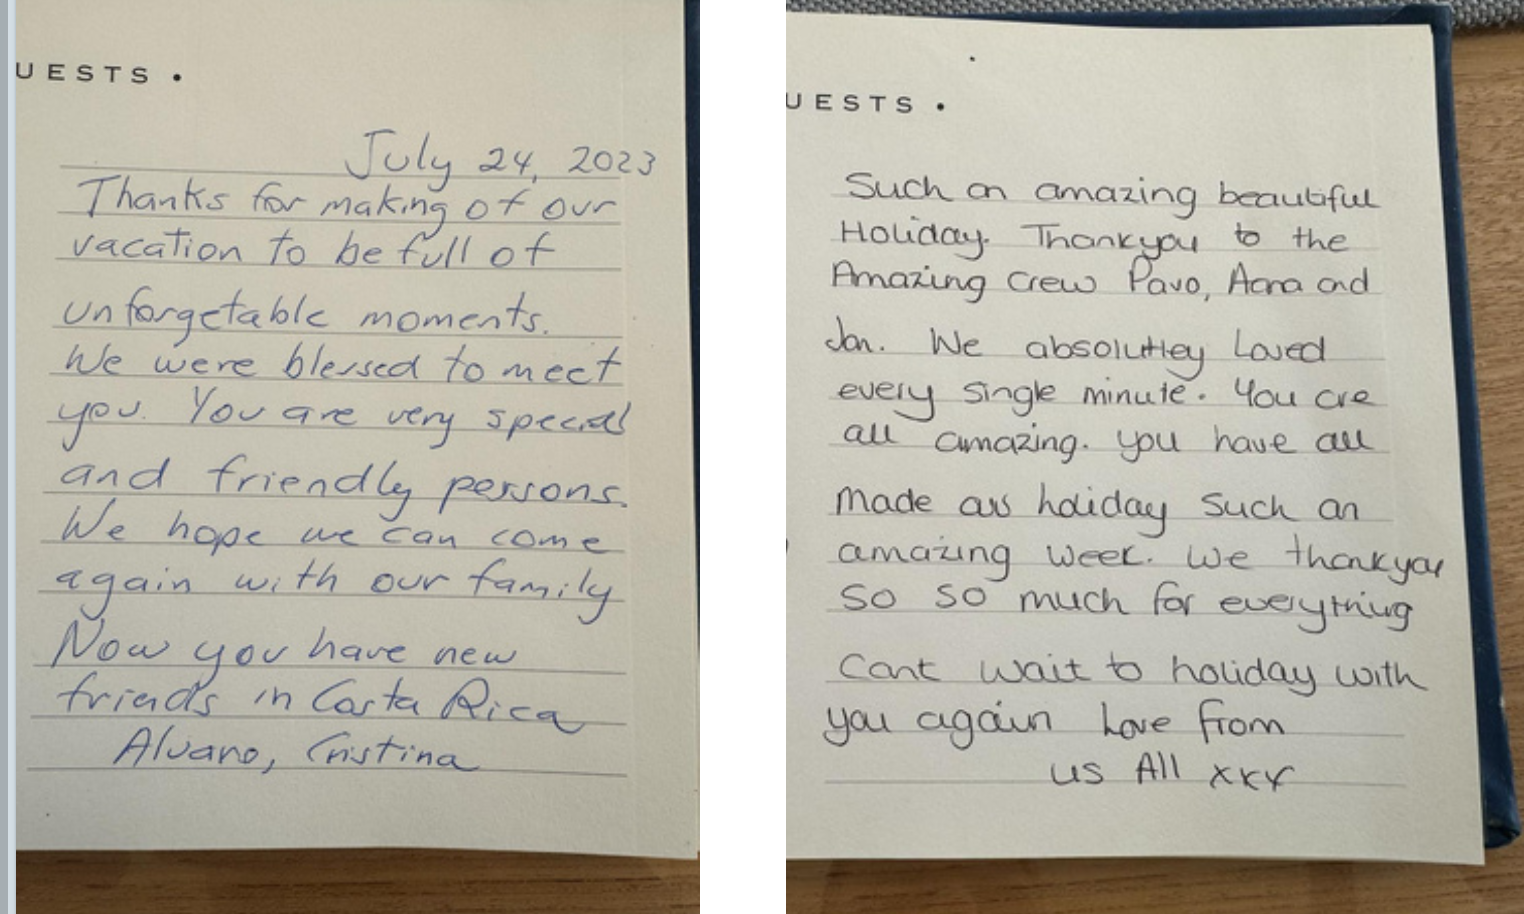 UESTS •
July 24, 2023
Thanks for making of our
vacation to be full of
unforgetable moments.
We were blessed to meet
you. You are very special
and friendly persons.
We hope we can come
again with our family
Now you have new
friends in Costa Rica
Alvaro, Cristina
UESTS •
Such an amazing beautiful
Holiday. Thankyou to the
Amazing Crew Pavo, and
Jan. We absoluttley Loved
every single minute. You are
all amazing. you have all
made our holiday such an
amazing week. We thankyou
so so much for everything
Cant wait to holiday with
you again Love from
us All xxx